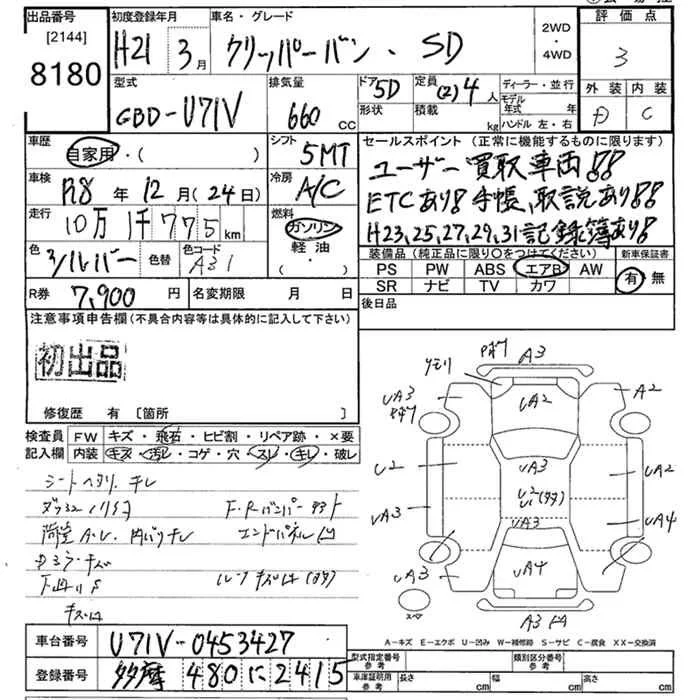 出品番号 [2144] 8180
初度登録年月 H21 3月
車名・グレード クリッパーバン、SD
2WD・4WD
評価点 3
外装 D 内装 C
型式 GBD-U71V
排気量 660 cc
ドア 5D 形状
定員 (2)4人 積載 kg
ディーラー・並行
モデル年式 年
ハンドル 左・右
車歴 自家用・( )
シフト 5MT
セールスポイント (正常に機能するものに限ります)
ユーザー買取車両!!
ETCあり!手帳、取説あり!!
H23,25,27,29,31記録簿あり!
車検 R8年12月(24日)
冷房 A/C
走行 10万1千775km
燃料 ガソリン 軽油・( )
色 シルバー 色替 色コード A31
装備品 (純正品に限り○をつけてください) 新車保証書
PS PW ABS エアB AW 有・無
SR ナビ TV カワ
R券 7,900円 名変期限 月 日
後日品
注意事項申告欄 (不具合内容等は具体的に記入して下さい)
初出品
修復歴 有 [箇所 ]
検査員記入欄 FW キズ・飛石・ヒビ割・リペア跡・×要
内装 キズ・汚レ・コゲ・穴・スレ・キレ・破レ
シートヘタリ、キレ
F・Rバンパー
エンドパネル凹
A3
A2
UA3
UA2
U2
UA3
UA2
UA3
UA3
UA4
UA3
UA4
A3
スペア
A-キズ E-エクボ U-凹み W-補修跡 S-サビ C-腐食 XX-交換済
車台番号 U71V-0453427
登録番号 多摩 480に2415
型式指定番号 参考 類別区分番号 参考
車庫証明用 参考 長さ cm 幅 cm 高さ cm